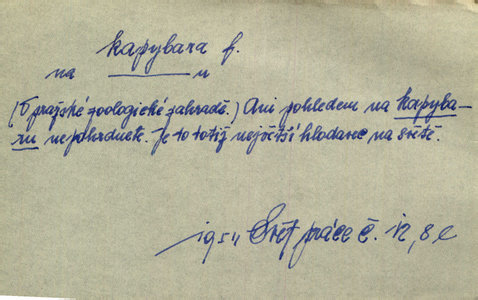 kapybara f.
na ______ u
(O pražské zoologické zahradě.) Ani pohledem na kapyba-
ru nepohrdnete. Je to totiž největší hlodavec na světě.
1954 Svět práce č. 12, 8